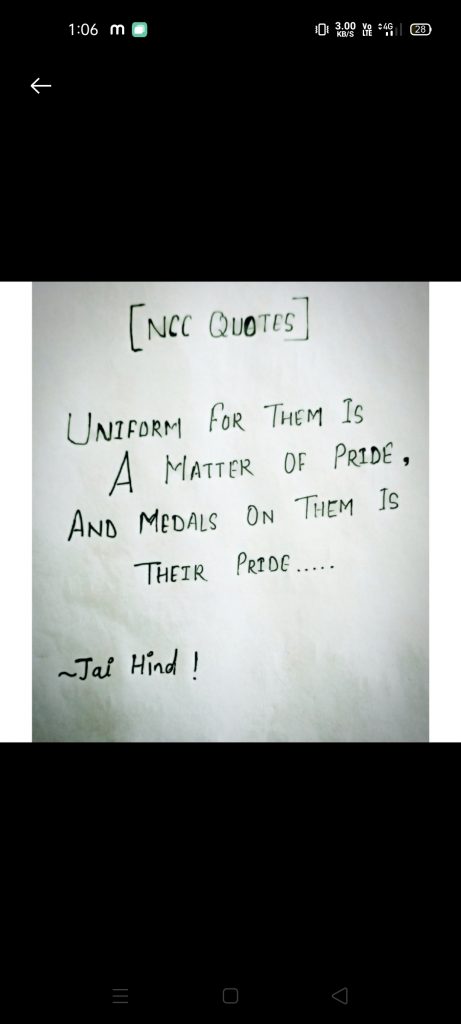 1:06 m 3.00 KB/S Vo LTE 4G 28
[NCC QUOTES]
UNIFORM FOR THEM IS
A MATTER OF PRIDE,
AND MEDALS ON THEM IS
THEIR PRIDE.....
~Jai Hind !